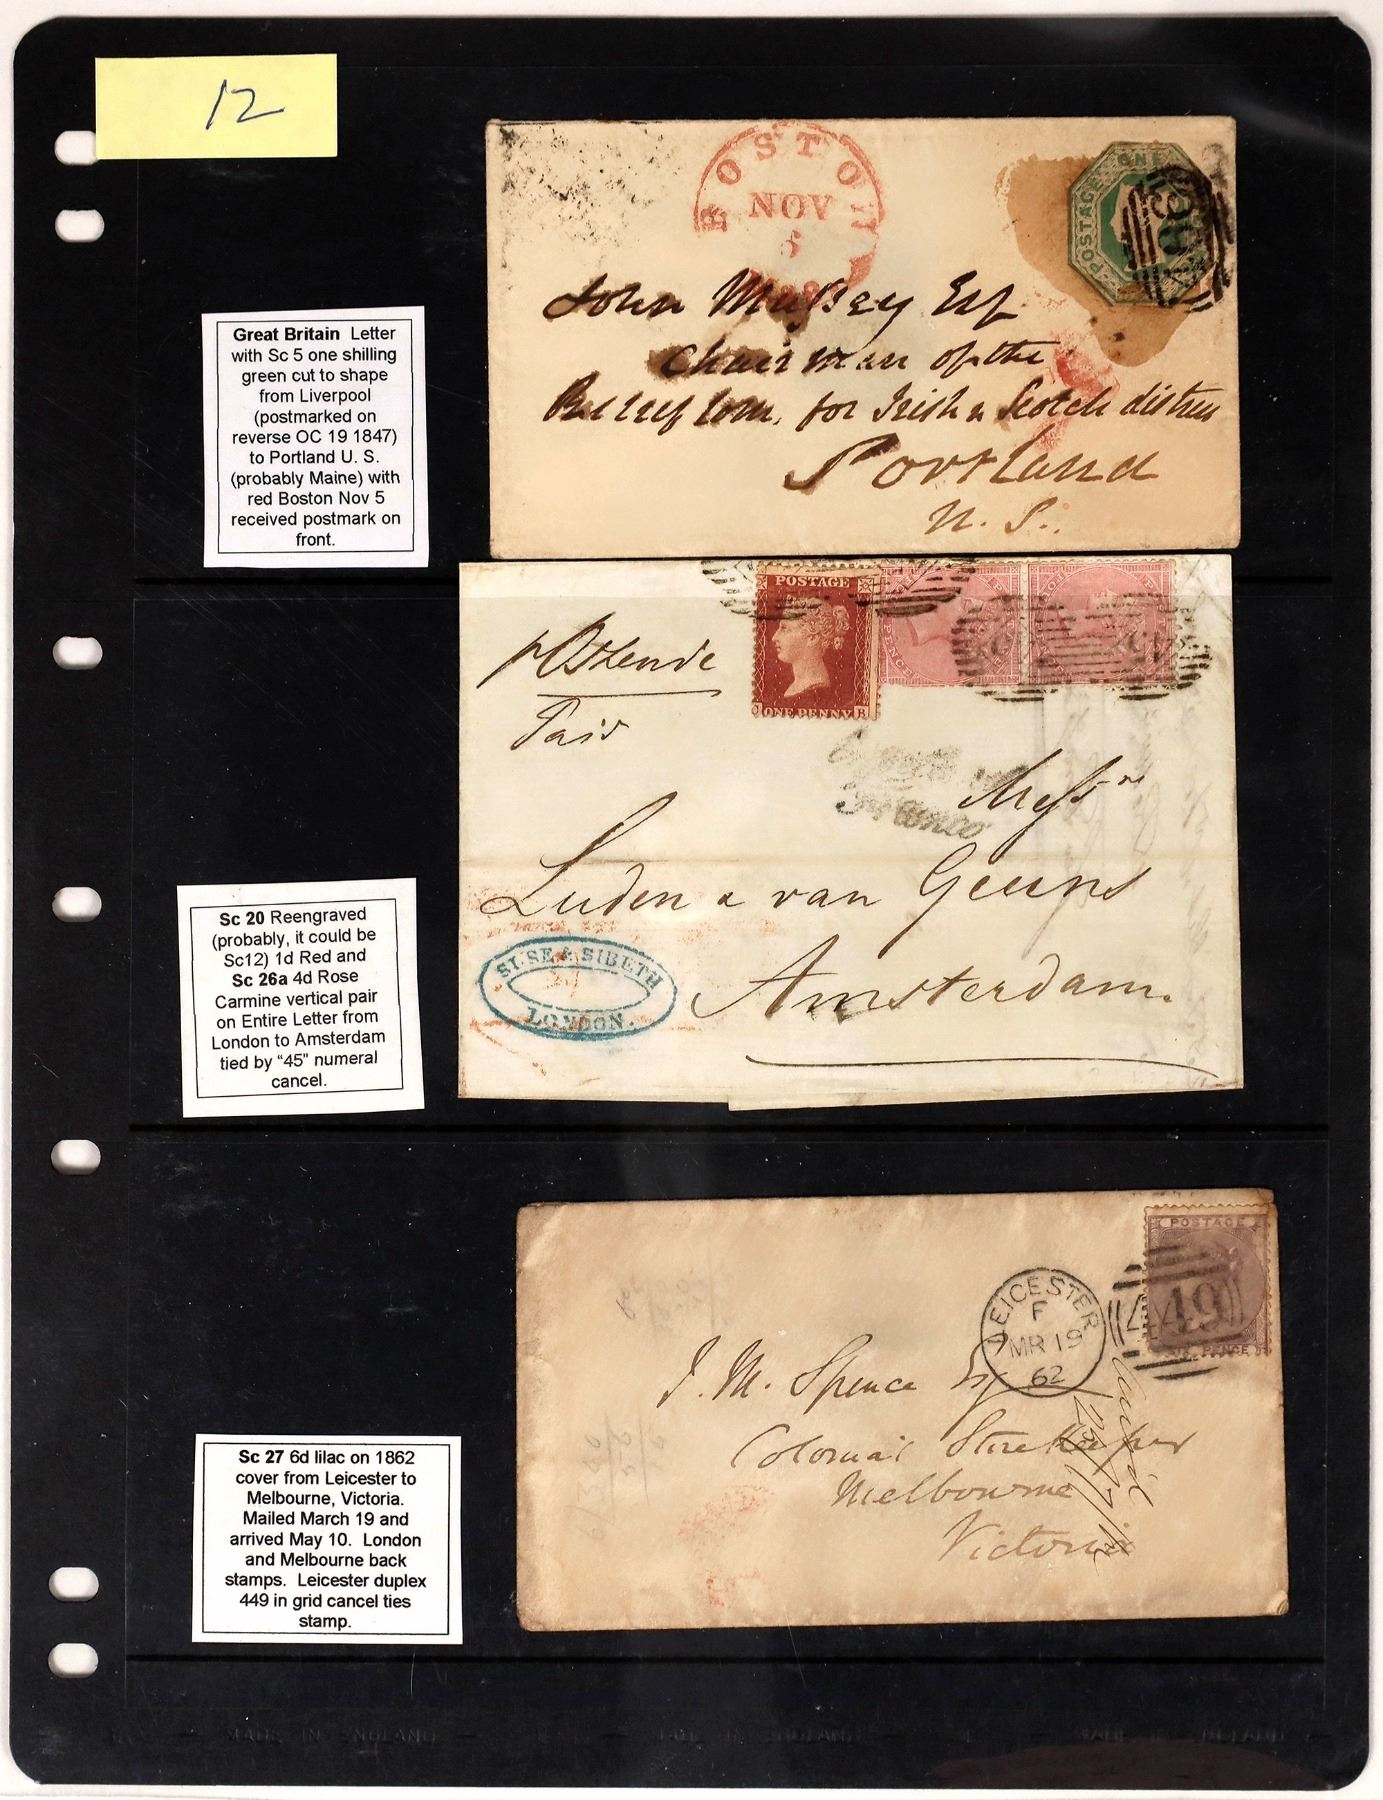 12
Great Britain Letter
with Sc 5 one shilling
green cut to shape
from Liverpool
(postmarked on
reverse OC 19 1847)
to Portland U. S.
(probably Maine) with
red Boston Nov 5
received postmark on
front.
BOSTON
NOV
5
POSTAGE ONE
John Mussey Esq
Chairman of the
Relief Com. for Irish & Scotch distress
Portland
U. S.
Sc 20 Reengraved
(probably, it could be
Sc12) 1d Red and
Sc 26a 4d Rose
Carmine vertical pair
on Entire Letter from
London to Amsterdam
tied by “45” numeral
cancel.
POSTAGE
ONE PENNY
p Ostende
Paid
Messrs
Luden & van Geuns
Amsterdam.
SUSE & SIBETH
LONDON.
Sc 27 6d lilac on 1862
cover from Leicester to
Melbourne, Victoria.
Mailed March 19 and
arrived May 10. London
and Melbourne back
stamps. Leicester duplex
449 in grid cancel ties
stamp.
POSTAGE
SIX PENCE
LEICESTER
F
MR 19
62
449
J. M. Spence Esq
Colonial Storekeeper
Melbourne
Victoria